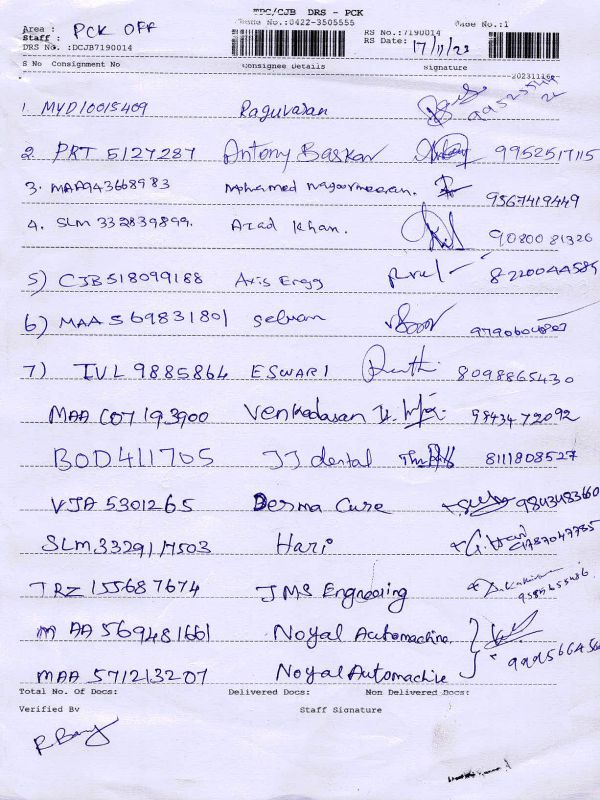 TPC/CJB DRS - PCK
Area : PCK OFF
Phone No.:0422-3505555
RS No.:7190014
Page No.:1
Staff :
RS Date: 17/11/23
DRS No. :DCJB7190014
S No Consignment No Consignee Details Signature
20231116
1. MYD10015409 Raguvasan
2. PRT 5127287 Antony Baskar 9952517115
3. MAA943668983 Mohamed 9567419449
4. SLM 332839899. Azad Khan. 9080081326
5) CJB518099188 Aris Engg 8220044585
6) MAA 569831801 Selvan
7) IVL 9885864 ESWARI 8098865430
MAA C07193900 Venkadasan 9943472092
BOD411705 JJ dental 8111808527
VJA 5301265 Derma Cure 9843483660
SLM332917503 Hari G. Hari
TRZ 155687674 JMS Engneering
MAA 569481661 Noyal Automachine
MAA 571213207 Noyal Automachine
Total No. Of Docs: Delivered Docs: Non Delivered Docs:
Verified By Staff Signature